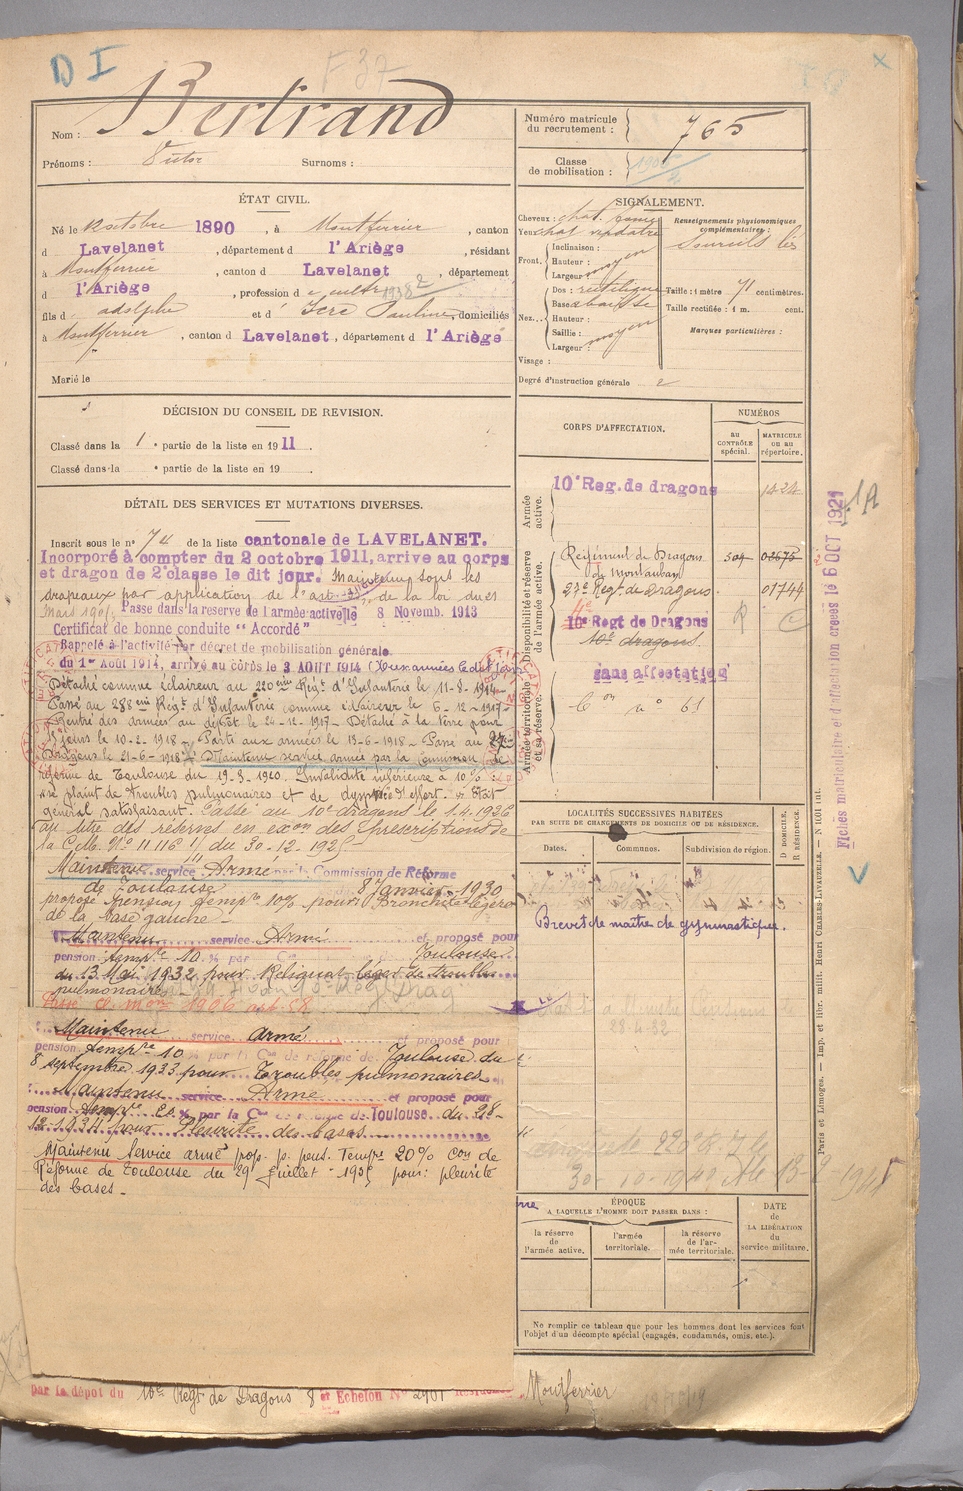 D I
F 37
Nom : Bertrand
Prénoms : Victor Surnoms :
Numéro matricule du recrutement : 765
Classe de mobilisation :
ÉTAT CIVIL.
Né le octobre 1890, à Montferrier, canton
d Lavelanet, département d l'Ariège, résidant
à Montferrier, canton d Lavelanet, département
d l'Ariège, profession d cultr
fils d adolphe et d Icre Pauline, domiciliés
à Montferrier, canton d Lavelanet, département d l'Ariège
Marié le
SIGNALEMENT.
Cheveux : chat.
Yeux chat verdatre
Front. Inclinaison : moyen
Hauteur :
Largeur :
Nez... Dos : rectiligne
Base abaissée
Hauteur :
Saillie : moyen
Largeur :
Visage :
Degré d'instruction générale 2
Renseignements physionomiques complémentaires :
Sourcils liés
Taille : 1 mètre 71 centimètres.
Taille rectifiée : 1 m. cent.
Marques particulières :
DÉCISION DU CONSEIL DE REVISION.
Classé dans la 1e partie de la liste en 1911.
Classé dans la e partie de la liste en 19 .
CORPS D'AFFECTATION.
NUMÉROS
AU CONTRÔLE spécial.
MATRICULE OU AU répertoire.
Armée active.
10e Reg. de dragons 1424
Disponibilité et réserve de l'armée active.
Régiment de Dragons 304 03675
de Montauban
27e Régt de Dragons 01744
10e Regt de Dragons
10e dragons
Armée territoriale et sa réserve.
sans affectation
Con no 61
DÉTAIL DES SERVICES ET MUTATIONS DIVERSES.
Inscrit sous le n° 74 de la liste cantonale de LAVELANET.
Incorporé à compter du 2 octobre 1911, arrive au corps
et dragon de 2e classe le dit jour. Maintenu sous les
drapeaux par application de l'art. de la loi du 21
Mars 1905, Passe dans la reserve de l'armée active le 8 Novemb. 1913
Certificat de bonne conduite "Accordé"
Rappelé à l'activité par décret de mobilisation générale
du 1er Août 1914, arrivé au corps le 3 AOUT 1914 (aux armées le dit jour)
Détaché comme éclaireur au 220eme Régt d'Infanterie le 11-8-1914-
Passé au 288eme Régt d'Infanterie comme éclaireur le 6-12-1917-
Rentré des armées au dépôt le 24-12-1917- Détaché à la terre pour
jours le 10-2-1918- Parti aux armées le 13-6-1918- Passé au 27e
Dragons le 21-6-1918. Maintenu service armée par la Commission de
réforme de Toulouse du 19-3-1920. Invalidité inférieure à 10% :
"se plaint de troubles pulmonaires et de dyspnée d'effort. Etat
général satisfaisant. Passé au 10e dragons le 1.4.1926
au titre des réserves en exon des prescriptions de
la C.M. No 11116 1/ du 30-12-1925
Maintenu service Armé par la Commission de Réforme
de Toulouse 8 Janvier 1930
propose pension tempre 10% pour : Bronchite légère
de la base gauche -
Maintenu service Armé et proposé pour
pension tempre 10 % par Con Toulouse
du 13 Mai 1932 pour Reliquat léger de troubles
pulmonaires
Maintenu service armé et proposé pour
pension tempre 10 % par la Con de réforme de Toulouse du
8 septembre 1933 pour Troubles pulmonaires
Maintenu service Armé et proposé pour
pension tempre 20 % par la Con de réforme de Toulouse du 28-
12-1934 pour Pleurite des bases
Maintenu service armé prop. p. pens. Tempre 20% Con de
Réforme de Toulouse du 29 Juillet 1935 pour : pleurite
des bases -
LOCALITÉS SUCCESSIVES HABITÉES
PAR SUITE DE CHANGEMENTS DE DOMICILE OU DE RÉSIDENCE.
Dates.
Communes.
Subdivision de région.
D DOMICILE, R RÉSIDENCE.
Brevet de maître de gymnastique.
28-4-32
ÉPOQUE
A LAQUELLE L'HOMME DOIT PASSER DANS :
la réserve de l'armée active.
l'armée territoriale.
la réserve de l'armée territoriale.
DATE de LA LIBÉRATION du service militaire.
Ne remplir ce tableau que pour les hommes dont les services font
l'objet d'un décompte spécial (engagés, condamnés, omis, etc.).
par le dépôt du 10e Régt de Dragons 8 et Echelon No 2901 Montferrier
Fiches matriculaire et d'affectation creées le 6 OCT 1921
1A
Paris et Limoges. — Imp. et libr. milit. Henri CHARLES-LAVAUZELLE. — N 1601 int.